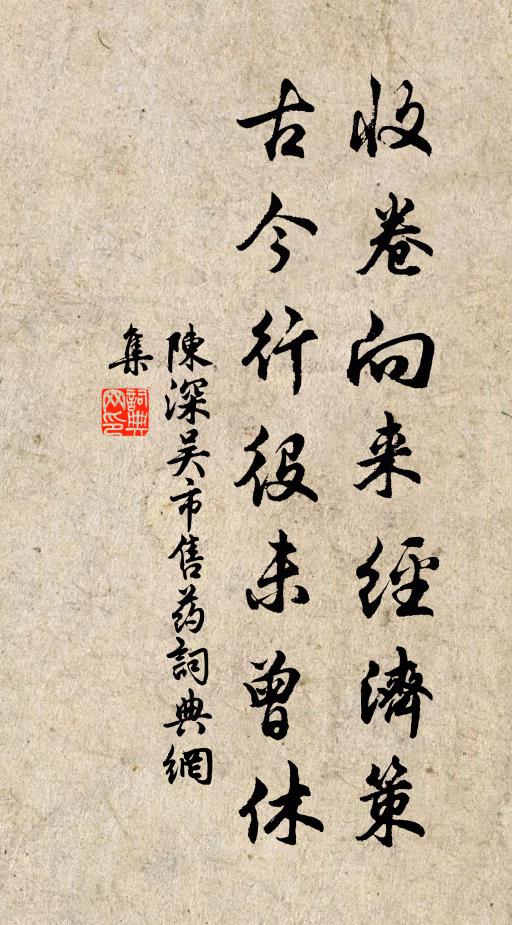 收卷向来經濟策
古今行役未曾休
陳深吴市售药詞典網
集
詞典
网印